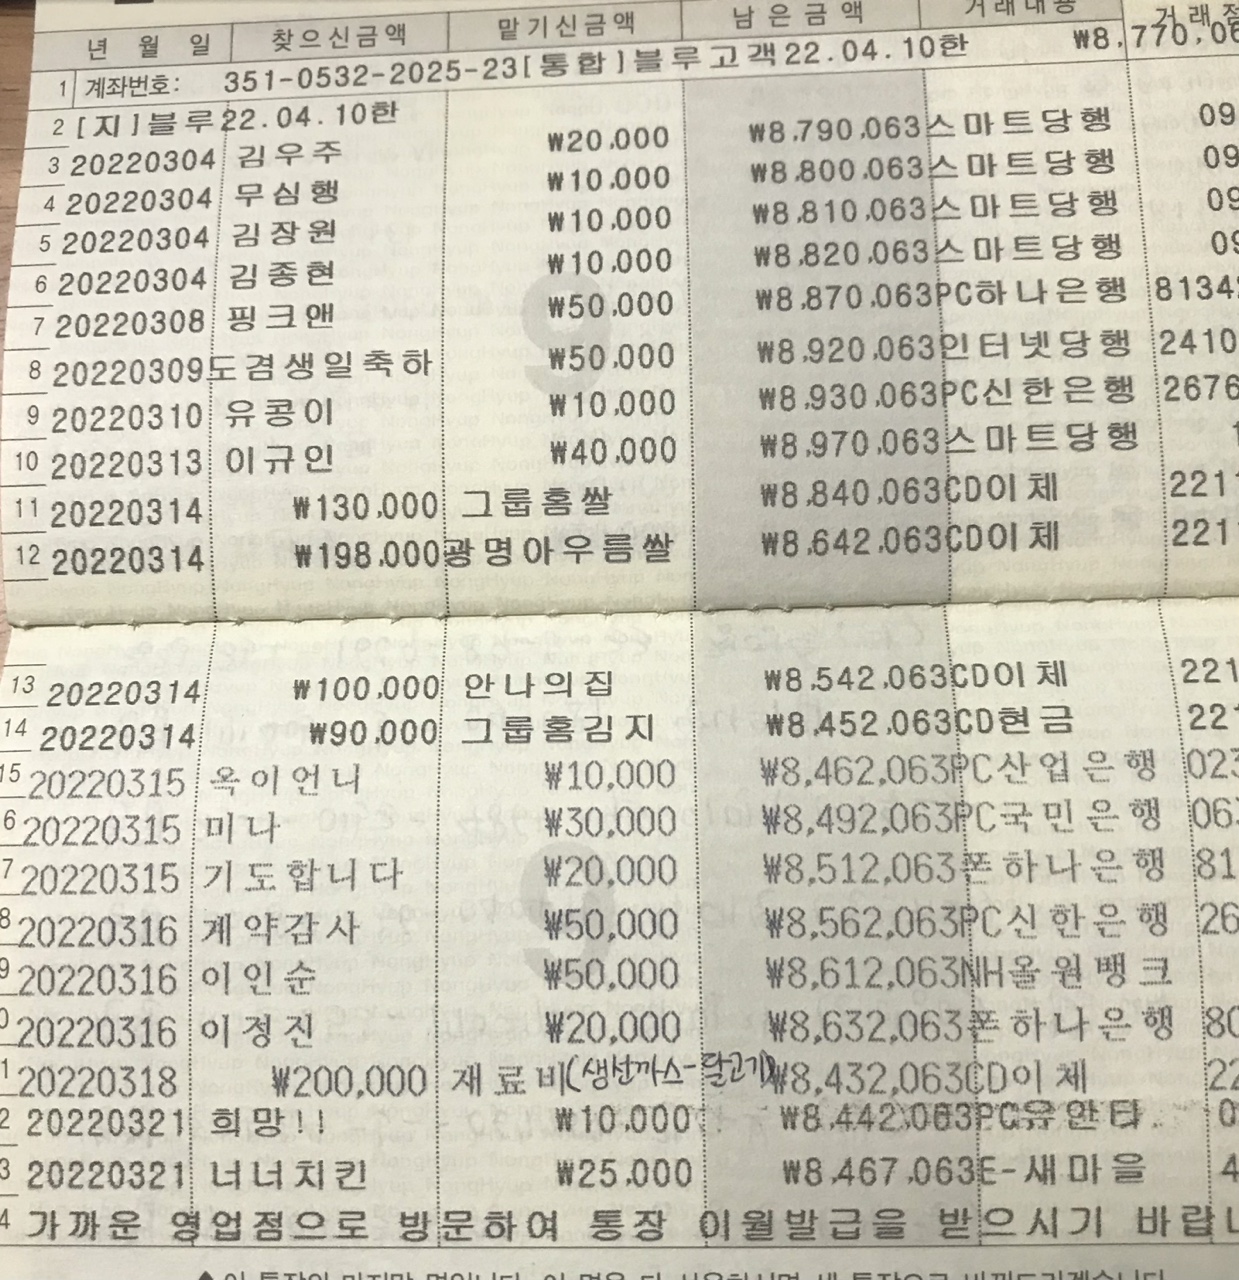 년 월 일 찾으신금액 맡기신금액 남은금액 거래내용 거래점
1 계좌번호: 351-0532-2025-23[통합]블루고객22.04.10한 ₩8,770,06
2 [지]블루22.04.10한
3 20220304 김우주 ₩20,000 ₩8,790,063 스마트당행 09
4 20220304 무심행 ₩10,000 ₩8,800,063 스마트당행 09
5 20220304 김장원 ₩10,000 ₩8,810,063 스마트당행 09
6 20220304 김종현 ₩10,000 ₩8,820,063 스마트당행 09
7 20220308 핑크앤 ₩50,000 ₩8,870,063 PC하나은행 8134
8 20220309 도겸생일축하 ₩50,000 ₩8,920,063 인터넷당행 2410
9 20220310 유콩이 ₩10,000 ₩8,930,063 PC신한은행 2676
10 20220313 이규인 ₩40,000 ₩8,970,063 스마트당행 1
11 20220314 ₩130,000 그룹홈쌀 ₩8,840,063 CD이체 2211
12 20220314 ₩198,000 광명아우름쌀 ₩8,642,063 CD이체 221
13 20220314 ₩100,000 안나의집 ₩8,542,063 CD이체 221
14 20220314 ₩90,000 그룹홈김지 ₩8,452,063 CD현금 221
15 20220315 옥이언니 ₩10,000 ₩8,462,063 PC산업은행 023
6 20220315 미나 ₩30,000 ₩8,492,063 PC국민은행 063
7 20220315 기도합니다 ₩20,000 ₩8,512,063 폰하나은행 81
8 20220316 계약감사 ₩50,000 ₩8,562,063 PC신한은행 26
9 20220316 이인순 ₩50,000 ₩8,612,063 NH올원뱅크
0 20220316 이정진 ₩20,000 ₩8,632,063 폰하나은행 80
1 20220318 ₩200,000 재료비(생선까스-닭고기) ₩8,432,063 CD이체 22
2 20220321 희망!! ₩10,000 ₩8,442,063 PC유안타 0
3 20220321 너너치킨 ₩25,000 ₩8,467,063 E-새마을 4
4 가까운 영업점으로 방문하여 통장 이월발급을 받으시기 바랍니